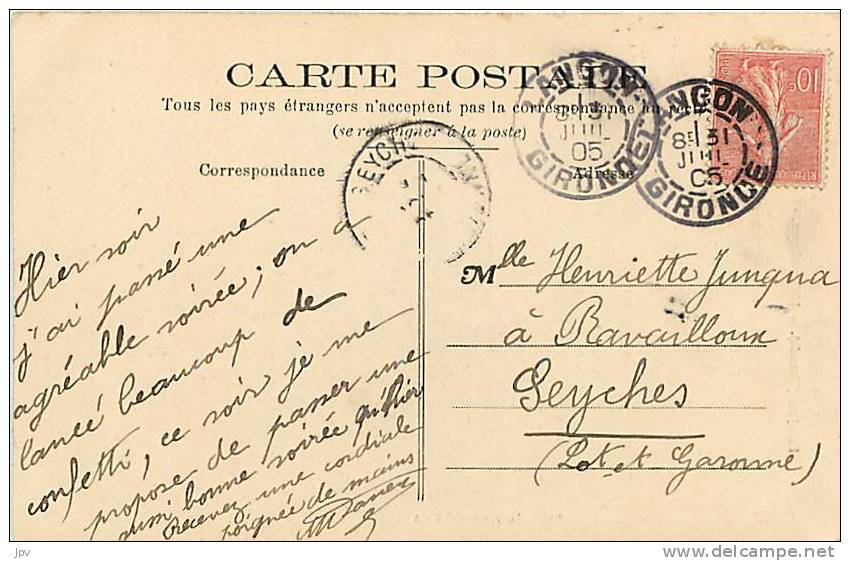 CARTE POSTALE
Tous les pays étrangers n'acceptent pas la correspondance au recto
(se renseigner à la poste)
Correspondance
Adresse
LANGON
8E 31
JUIL
05
GIRONDE
LANGON
8E 31
JUIL
05
GIRONDE
10c
SEYCHES
Hier soir
j'ai passé une
agréable soirée; on a
lancé beaucoup de
confetti, ce soir je me
propose de passer une
aussi bonne soirée qu'hier
Recevez une cordiale
poignée de mains
Mlle Henriette Junqua
à Ravailloux
Seyches
(Lot et Garonne)
jpv
http://www.delcampe.net